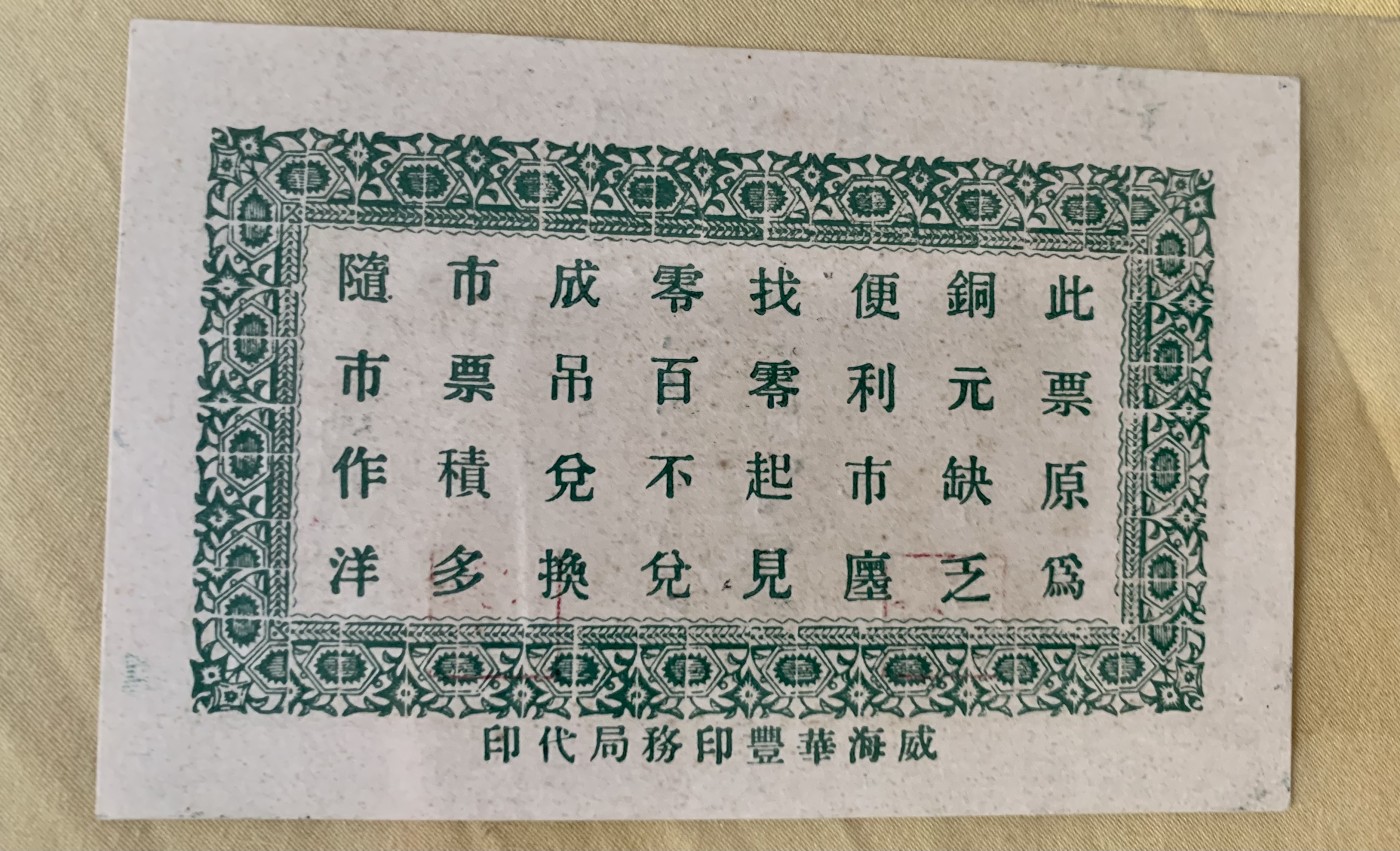 此票原爲
銅元缺乏
便利市廛
找零起見
零百不兌
成吊兌換
市票積多
隨市作洋
威海華豐印務局代印